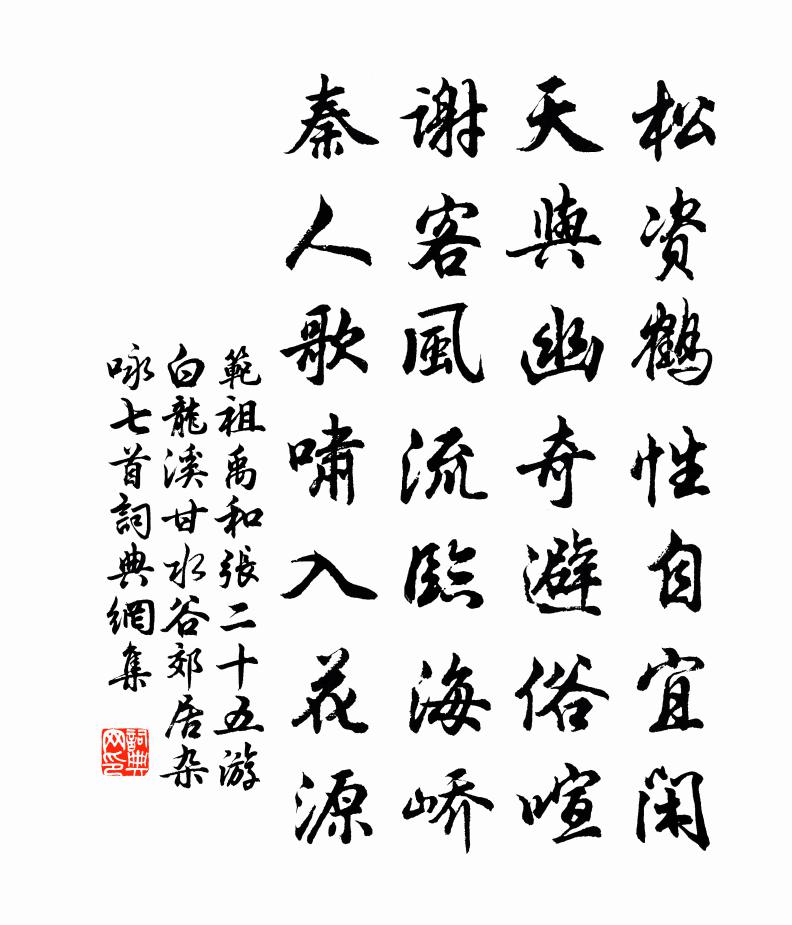 松资鹤性自宜闲
天與幽奇避俗喧
谢客風流臨海峤
秦人歌嘯入花源
範祖禹和張二十五游
白龍溪甘水谷郊居杂
咏七首詞典網集
詞典网印